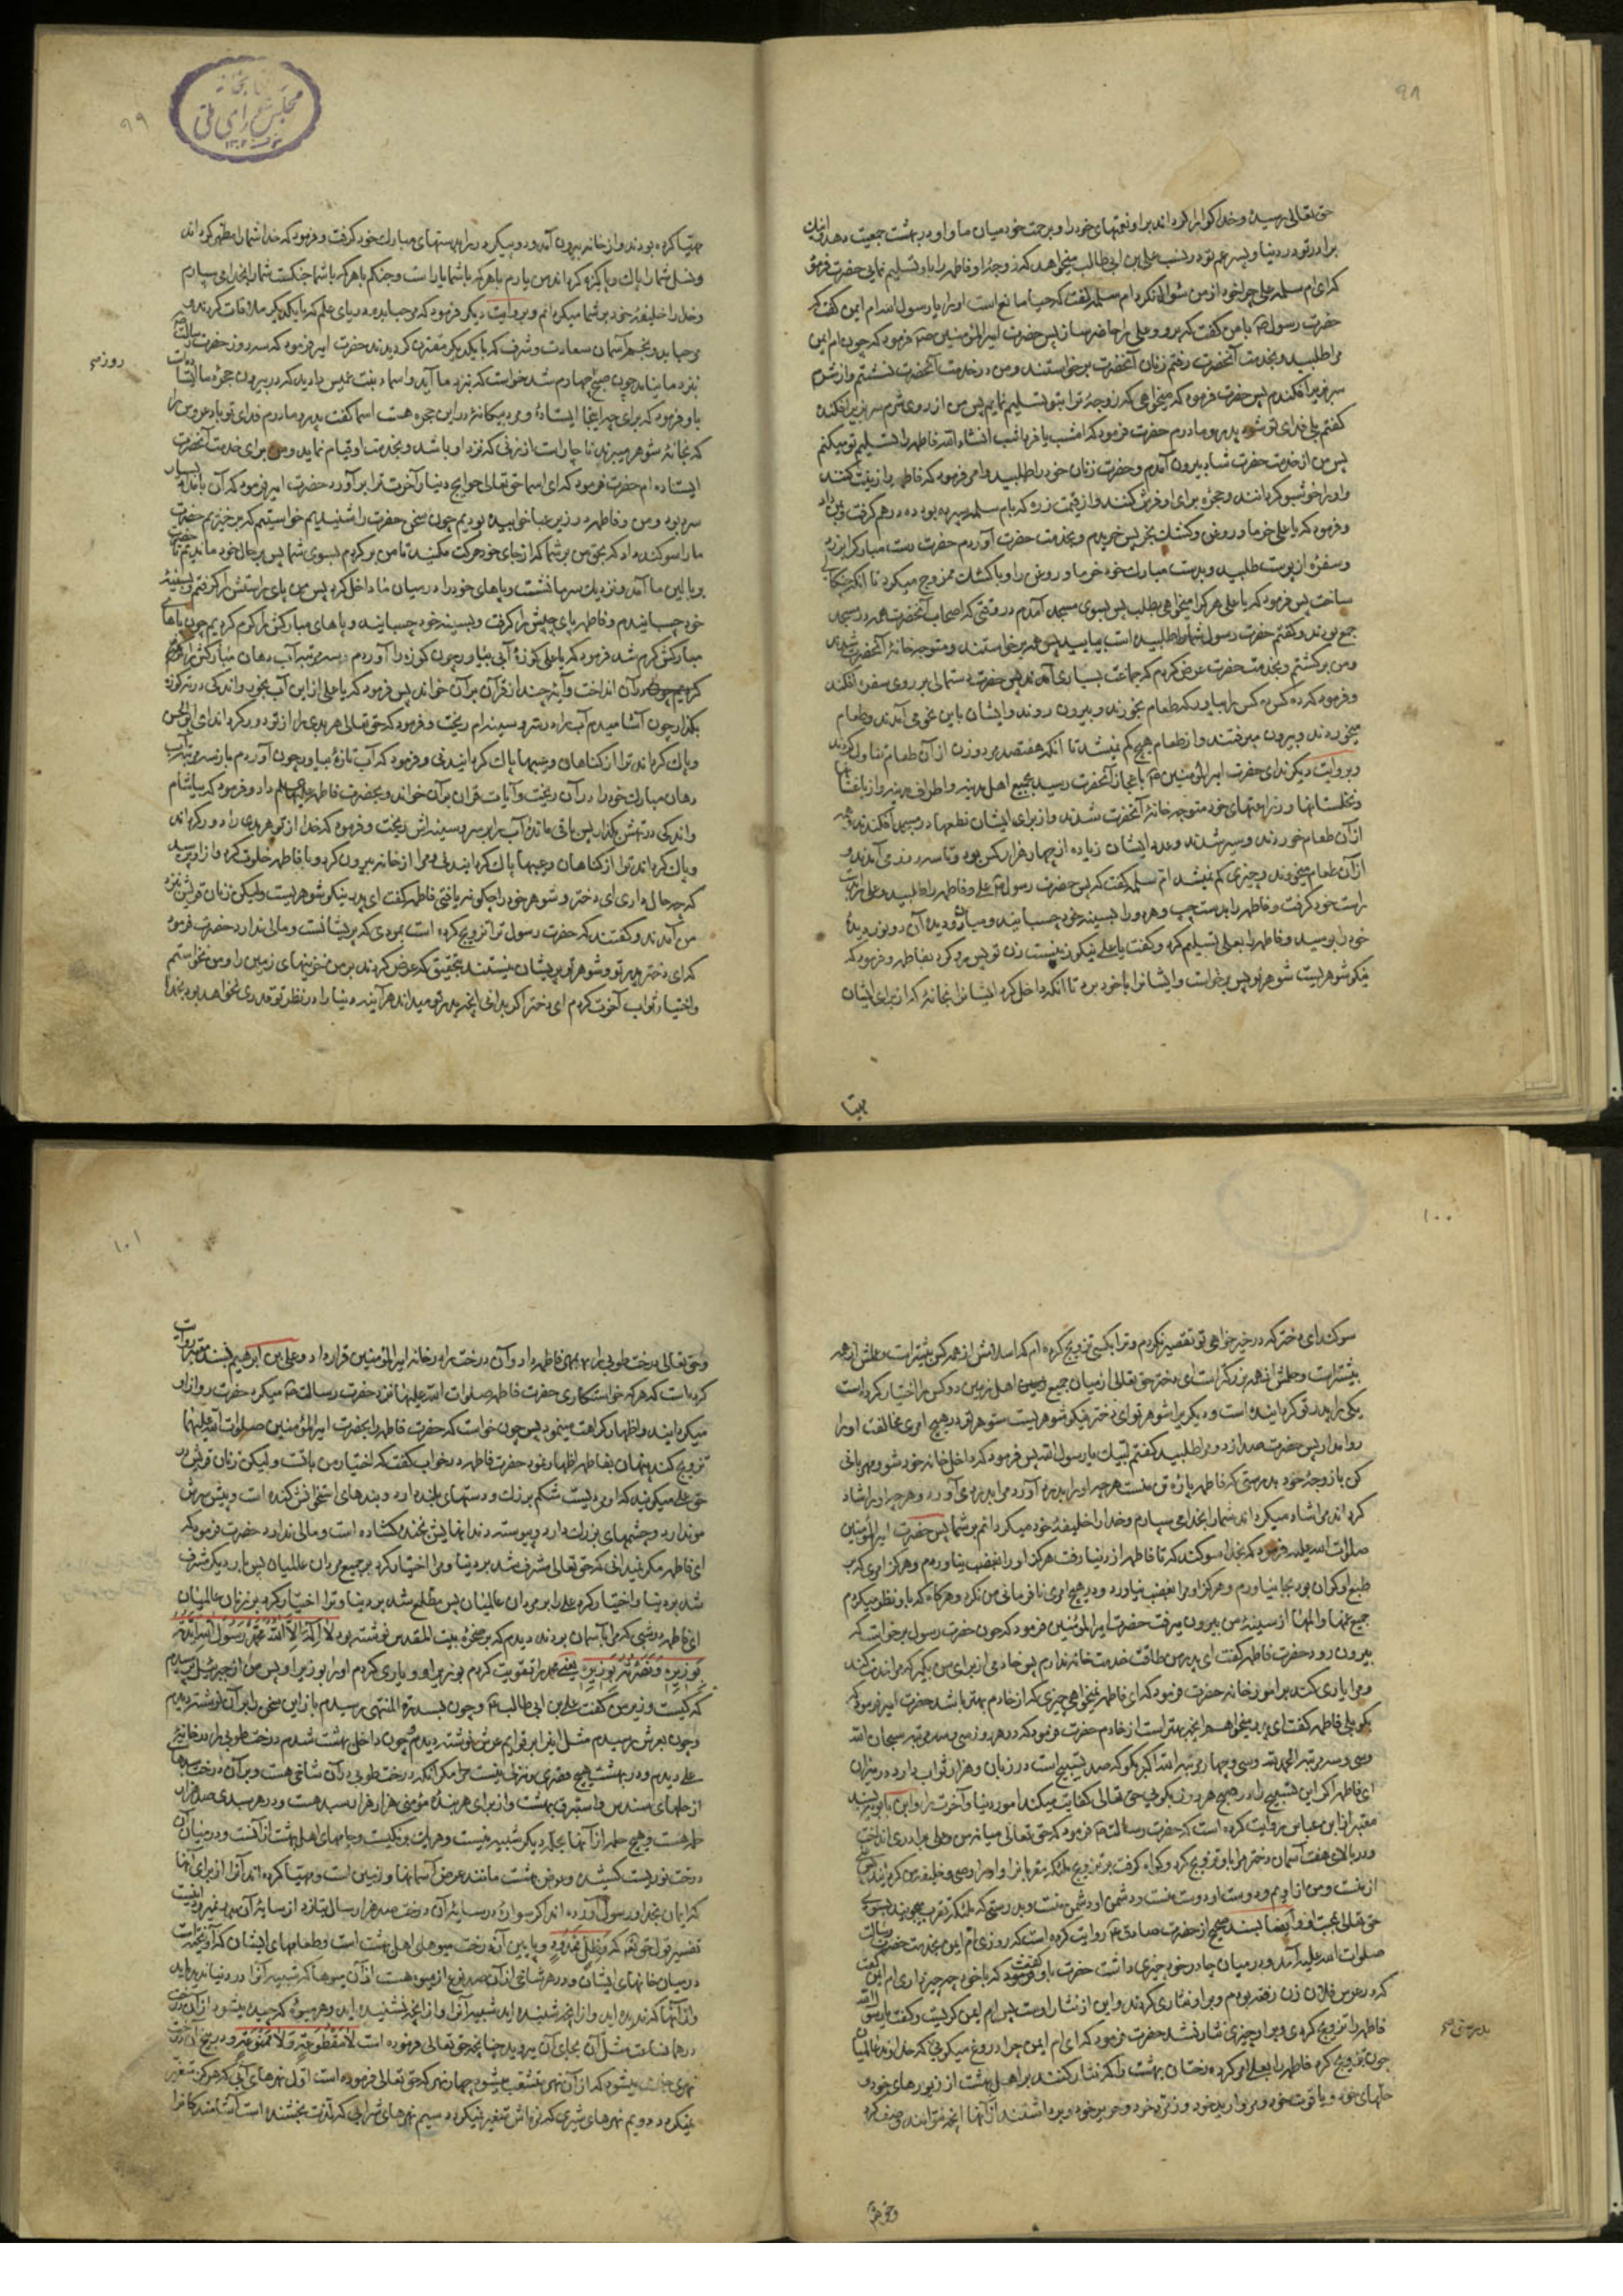 ۹۸
حق تعالی رسید و خدا گوارا گرداند برای او نعمتهای خود را و برحمت خود میان ما و او در بهشت جمعیت دهد اینک
برادر تو در دنیا و پسر عم تو در نسب علی بن ابی طالب میخواهد که زوجهٔ او فاطمه را باو تسلیم نمایی حضرت فرمود
که ای ام سلمه علی چرا خود از من سؤال نکرد ام سلمه گفت که حیا مانع است او را یا رسول الله ام ایمن گفت که
حضرت رسول ص با من گفت که برو و علی را حاضر ساز پس حضرت امیرالمؤمنین فرمود که چون ام ایمن
مرا طلبید و بخدمت آنحضرت رفتم زنان آنحضرت برخاستند و من در خدمت آنحضرت نشستم و از شرم
سر بزیر افکندم پس حضرت فرمود که میخواهی که زوجهٔ ترا بتو تسلیم نمایم پس من از روی شرم سر بزیر افکنده
گفتم بلی فدای تو شود پدر و مادرم حضرت فرمود که امشب یا فردا شب انشاء الله فاطمه را تسلیم تو میکنم
پس من از خدمت حضرت شاد بیرون آمدم و حضرت زنان خود را طلبید و امر فرمود که فاطمه را زینت کنند
و او را خوشبو گردانند و حجره برای او فرش کنند و از قیمت زره که بام سلمه سپرده بود ده درهم گرفت و بمن داد
و فرمود که یا علی خرما و روغن و کشک بخر پس خریدم و بخدمت حضرت آوردم حضرت دست مبارک را برزد
و سفرهٔ از پوست طلبید و بدست مبارک خود خرما و روغن را و با کشک ممزوج میکرد تا آنکه
ساخت پس فرمود که یا علی هر که را میخواهی بطلب پس بسوی مسجد آمدم در وقتی که اصحاب آنحضرت همه در مسجد
جمع بودند و گفتم حضرت رسول شما را طلبیده است بیایید پس همه برخاستند و متوجه خانهٔ آنحضرت شدند
و من برگشتم و بخدمت حضرت عرض کردم که جماعت بسیاری آمدند پس حضرت دستمالی بر روی سفره افکند
و فرمود که ده کس ده کس را بیاور که طعام بخورند و بیرون روند و ایشان باین نحو می آمدند و طعام
میخوردند و بیرون میرفتند و از طعام هیچ کم نمیشد تا آنکه هفتصد مرد و زن از آن طعام تناول کردند
و بروایت دیگر ندای حضرت امیرالمؤمنین ع باعجاز آنحضرت رسید بجمیع اهل مدینه و اطراف مدینه و از باغستانها
و نخلستانها و زراعتهای خود متوجه خانهٔ آنحضرت شدند و از برای ایشان نطعها در مسجد افکندند همه
از آن طعام خوردند و سیر شدند و عدد ایشان زیاده از چهار هزار کس بود و تا سه روز می آمدند و
از آن طعام میخوردند و چیزی کم نمیشد ام سلمه گفت که پس حضرت رسول علی و فاطمه را طلبید و علی را بدست
راست خود گرفت و فاطمه را بدست چپ و هر دو را بسینه خود چسبانید و میان دو دیدهٔ آن دو نور دیدهٔ
خود را بوسید و فاطمه را بعلی تسلیم کرد و گفت یا علی نیکو زنیست زن تو پس رو کرد بفاطمه و فرمود که
نیکو شوهریست شوهر تو پس برخاست و ایشان را با خود برد تا آنکه داخل کرد ایشان را بخانهٔ که از برای ایشان
مهیا
۹۹
مهیا کرده بودند و از خانه بیرون آمد و دو پیکر در را بدستهای مبارک خود گرفت و فرمود که خدا شما را مطهر گرداند
و نسل شما را پاک و پاکیزه گرداند من یارم با هر که با شما یار است و جنگم با هر که با شما جنگست شما را بخدا می سپارم
و خدا را خلیفهٔ خود بر شما میگردانم و بروایت دیگر فرمود که مرحبا بدو دریای علم که با یکدیگر ملاقات کردند و
مرحبا بدو نجم آسمان سعادت و شرف که با یکدیگر مقترن گردیدند حضرت امیر فرمود که سه روز حضرت رسالت
نزد ما نیامد چون صبح چهارم شد خواست که بنزد ما آید و اسماء بنت عمیس را دید که در بیرون حجرهٔ ما ایستاده است
باو فرمود که برای چه اینجا ایستادهٔ و مرد بیگانهٔ در این حجره هست اسما گفت پدر و مادرم فدای تو باد عروس را
که بخانهٔ شوهر میبرند ناچار است از زنی که نزد او باشد و بخدمت او قیام نماید و من برای خدمت آنحضرت
ایستاده ام حضرت فرمود که ای اسما حق تعالی حوایج دنیا و آخرت ترا برآورد حضرت امیر فرمود که آن بامداد بسیار
سرد بود و من و فاطمه در زیر عبا خوابیده بودیم چون سخن حضرت را شنیدیم خواستیم که برخیزیم حضرت
ما را سوگند داد که بحق من بر شما که از جای خود حرکت مکنید تا من برگردم بسوی شما پس بر حال خود ماندیم تا حضرت
ببالین ما آمد و نزدیک سر ما نشست و پاهای خود را در میان ما داخل کرد پس من پای راستش را گرفتم و بسینهٔ
خود چسبانیدم و فاطمه پای چپش را گرفت و بسینه خود چسبانید و پاهای مبارکش را گرم کردیم چون پاهای
مبارکش گرم شد فرمود که یا علی کوزهٔ آبی بیاور چون کوزه را آوردم سه مرتبه آب دهان مبارکش را
در آن انداخت و آیهٔ چند از قرآن بر آن خواند پس فرمود که یا علی از این آب بخور و اندکی در ته کوزه
بگذار چون آشامیدم آب را در سر و سینه ام ریخت و فرمود که حق تعالی هر بدی را از تو دور گرداند ای ابوالحسن
و پاک گرداند ترا از گناهان و عیبها پاک گردانیدنی و فرمود که آب تازهٔ بیاور چون آوردم باز سه مرتبه آب
دهان مبارک خود را در آن ریخت و آیات قرآن بر آن خواند و بحضرت فاطمه علیها السلام داد و فرمود که بیاشام
و اندکی در تهش بگذار پس باقی ماندهٔ آب را بر سر و سینه اش ریخت و فرمود که خدا از تو هر بدی را دور گرداند
و پاک گرداند ترا از گناهان و عیبها پاک گردانیدنی و مرا از خانه بیرون کرد و با فاطمه خلوت کرد و از او پرسید
که چه حال داری ای دختر و شوهر خود را چگونه یافتی فاطمه گفت ای پدر نیکو شوهریست ولیکن زنان قریش بنزد
من آمدند و گفتند که حضرت رسول ترا تزویج کرده است بمردی که پریشانست و مالی ندارد حضرت فرمود
که ای دختر پدر تو و شوهر تو پریشان نیستند بتحقیق که عرض کردند بر من خزینهای زمین را و من نخواستم
و اختیار ثواب آخرت کردم ای دختر اگر بدانی آنچه پدر تو میداند هر آینه دنیا را در نظر تو قدری نخواهد بود بخدا
۱۰۰
سوگند ای دختر که در خیر خواهی تو تقصیر نکردم و ترا بکسی تزویج کرده ام که اسلامش از همه کس بیشتر است و علمش از همه
بیشتر است و حلمش از همه بزرگتر است ای دختر حق تعالی از میان جمیع اهل زمین دو کس را اختیار کرده است
یکی را پدر تو گردانیده است و دیگری را شوهر تو ای دختر نیکو شوهریست شوهر تو در هیچ امری مخالفت او را
روا مدار پس حضرت صدا زد و مرا طلبید گفتم لبیک یا رسول الله پس فرمود که داخل خانه خود شو و مهربانی
کن با زوجهٔ خود بدرستی که فاطمه پارهٔ تن منست هر چه او را بدرد آورد مرا بدرد می آورد و هر چه او را شاد
گرداند مرا شاد میگرداند شما را بخدا می سپارم و خدا را خلیفهٔ خود میگردانم بر شما پس حضرت امیرالمؤمنین
صلوات الله علیه فرمود که بخدا سوگند که تا فاطمه از دنیا رفت هرگز او را بغضب نیاوردم و هرگز امری که بر
طبع او گران بود بجا نیاوردم و هرگز او مرا بغضب نیاورد و در هیچ امری نافرمانی من نکرد و هرگاه که باو نظر میکردم
جمیع غمها و المها از سینهٔ من بیرون میرفت حضرت امیرالمؤمنین فرمود که چون حضرت رسول برخاست که
بیرون رود حضرت فاطمه گفت ای پدر من طاقت خدمت خانه ندارم پس خادمی از برای من بگیر که مرا خدمت کند
و مرا یاری کند بر امور خانه حضرت فرمود که ای فاطمه نمیخواهی چیزی که از خادم بهتر باشد حضرت امیر فرمود که
بگو بلی فاطمه گفت ای پدر میخواهم آنچه بهتر است از خادم حضرت فرمود که در هر روز سی و سه مرتبه سبحان الله
و سی و سه مرتبه الحمد لله و سی و چهار مرتبه الله اکبر بگو که صد تسبیح است در زبان و هزار ثواب دارد در میزان
ای فاطمه اگر این تسبیح را در صبح هر روز بگویی حق تعالی کفایت میکند امور دنیا و آخرت ترا و ابن بابویه بسند
معتبر از ابن عباس روایت کرده است که حضرت رسالت فرمود که حق تعالی میانه من و علی برادری انداخت
و در بالای هفت آسمان دختر مرا باو تزویج کرد و گواه گرفت بر تزویج ملائکه مقربان را و او را وصی و خلیفه من گردانید علی
از منست و من از اویم و دوست او دوست منست و دشمن او دشمن منست و بدرستی که ملائکه تقرب میجویند بسوی
حق تعالی بمحبت او و ایضا بسند صحیح از حضرت صادق ع روایت کرده است که روزی ام ایمن بخدمت حضرت رسالت
صلوات الله علیه آمد و در میان چادر خود چیزی داشت حضرت باو گفت که با خود چه چیز داری ام ایمن گفت
که در عرس فلان زن رفته بودم و بر او نثاری کردند و این از نثار اوست پس ام ایمن گریست و گفت یا رسول الله
فاطمه را تزویج کردی و بر او چیزی نثار نشد حضرت فرمود که ای ام ایمن چرا دروغ میگویی که خداوند عالمیان
چون تزویج کرد فاطمه را بعلی امر کرد درختان بهشت را که نثار کنند بر اهل بهشت از زیورهای خود و
حلهای خود و یاقوت خود و مروارید خود و زمرد خود و حریر خود و برداشتند از آنها آنچه نتوانند وصف کرد
۱۰۱
و حق تعالی درخت طوبی را بمهر فاطمه داد و آن درخت را در خانه امیرالمؤمنین قرار داد و علی بن ابرهیم بسند معتبر روایت
کرده است که هر که خواستگاری حضرت فاطمه صلوات الله علیها نزد حضرت رسالت میکرد حضرت رو از او
میگردانید و اظهار کراهت مینمود پس چون خواست که حضرت فاطمه را بحضرت امیرالمؤمنین صلوات الله علیهما
تزویج کند پنهان بفاطمه اظهار نمود حضرت فاطمه در جواب گفت که اختیار من با تست ولیکن زنان قریش در
حق علی میگویند که او مردیست شکم بزرگ و دستهای بلند دارد و بندهای استخوانش کنده است و پیش سرش
مو ندارد و چشمهای بزرگ دارد و پیوسته دندانهایش بخنده گشاده است و مالی ندارد حضرت فرمود که
ای فاطمه مگر نمیدانی که حق تعالی مشرف شد بر دنیا و مرا اختیار کرد بر جمیع مردان عالمیان پس بار دیگر مشرف
شد بر دنیا و اختیار کرد علی را بر مردان عالمیان پس مطلع شد بر دنیا و ترا اختیار کرد بر زنان عالمیان
ای فاطمه در شبی که مرا بآسمان بردند دیدم که بر صخرهٔ بیت المقدس نوشته بود لا اله الا الله محمد رسول الله ایدته
بوزیره و نصرته بوزیره یعنی محمد را تقویت کردم بوزیر او و یاری کردم او را بوزیر او پس من از جبرئیل پرسیدم
که کیست وزیر من گفت علی بن ابی طالب ع و چون بسدرة المنتهی رسیدم باز این سخن را بر آن نوشته دیدم
و چون بعرش رسیدم مثل این را بر قوایم عرش نوشته دیدم و چون داخل بهشت شدم درخت طوبی را در خانهٔ
علی دیدم و در بهشت هیچ قصری و منزلی نیست مگر آنکه درخت طوبی در آن شاخی هست و بر آن درخت سبدها
از حلهای سندس و استبرق بهشت و از برای هر بندهٔ مؤمنی هزار هزار سبد هست و در هر سبدی صد هزار
حله هست و هیچ حله از آنها بحله دیگر شبیه نیست و هر یک برنگیست و جامهای اهل بهشت از آنست و در میان آن
درخت نوریست کشیده و عرض بهشت مانند عرض آسمانها و زمین است و مهیا کرده اند آن را از برای آنها
که ایمان بخدا و رسول آورده اند اگر سواری در سایهٔ آن درخت صد هزار سال بتازد از سایهٔ آن بدر نمیرود اینست
تفسیر قول حق تعالی که و ظل ممدود و پایین آن درخت میوهای اهل بهشت است و طعامهای ایشان که آویخته است
در میان خانهای ایشان و در هر شاخی از آن صد نوع از میوه هست از آن میوها که شبیه آن را در دنیا دیده اید
و از آنها که ندیده اید و از آنچه شنیده اید شبیه آن را و از آنچه نشنیده اید و هر میوهٔ که چیده میشود از آن درخت
در همان ساعت مثل آن بجای آن میروید چنانچه حق تعالی فرموده است لا مقطوعة ولا ممنوعة و در بیخ آن درخت
نهری جاری میشود که از آن نهر منشعب میشود چهار نهر که حق تعالی فرموده است اول نهرهای آبی که هرگز متغیر
نمیگردد دویم نهرهای شیری که مزه اش متغیر نمیگردد سیم نهرهای شرابی که لذت بخشنده است آشامندگان را